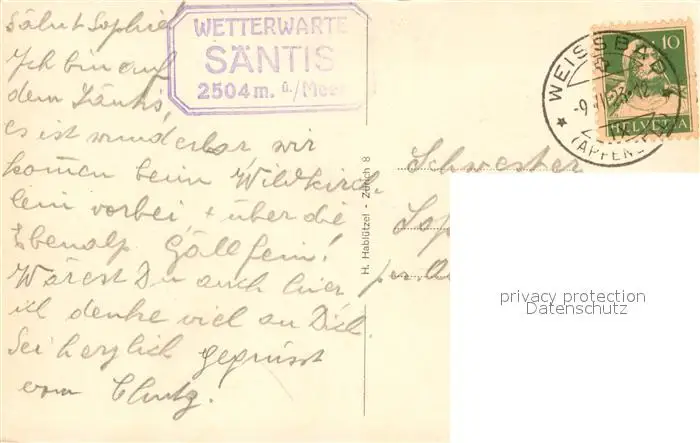 Salut Sophie!
Ich bin auf
dem Säntis,
es ist wunderbar wir
komen beim Wildkirch-
lein vorbei + über die
Ebenalp. Gäll fein!
Wärest Du auch hier
ich denke viel an Dich.
Sei herzlich gegrüsst
vom
WETTERWARTE
SÄNTIS
2504 m. ü./Meer
H. Hablützel - Zürich 8
WEISSBAD
(APPENZ
10
HELVETIA
Schwester
privacy protection
Datenschutz